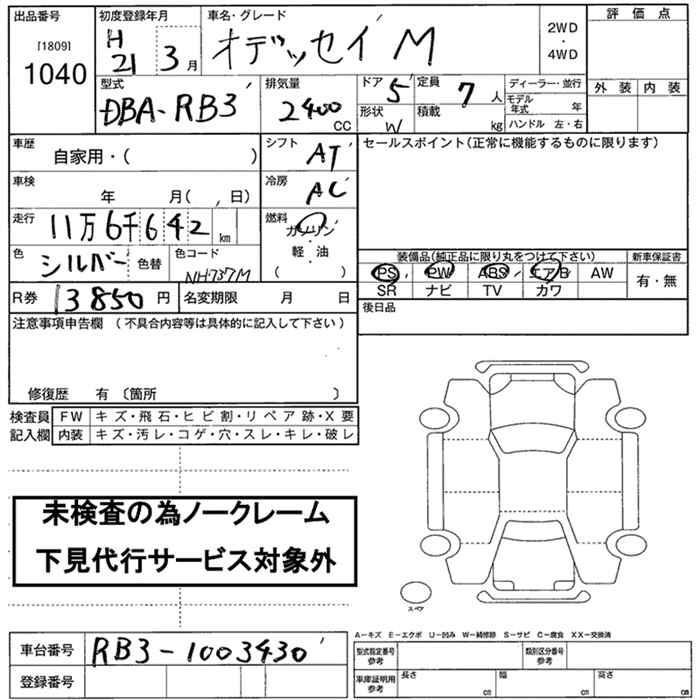 出品番号 初度登録年月 車名・グレード 評 価 点
[1809]
1040
H
21 3月 オデッセイ M
2WD
・
4WD
外 装 内 装
型式 排気量 ドア 定員 ディーラー・並行
DBA-RB3 2400 CC 5 7人
モデル年式 年
形状 積載
W kg
ハンドル 左・右
車歴
自家用・( )
シフト
AT
セールスポイント(正常に機能するものに限ります)
車検
年 月( , 日)
冷房
AC
走行
11万6千642 km
燃料
ガソリン
・
軽 油
( )
色
シルバー 色替
色コード
NH737M
装備品(純正品に限り丸をつけて下さい) 新車保証書
PS PW ABS エアB AW
SR ナビ TV カワ
有・無
R券 13850円 名変期限 月 日
後日品
注意事項申告欄 (不具合内容等は具体的に記入して下さい)
修復歴 有 〔箇所 〕
検査員
記入欄
FW キズ・飛石・ヒビ割・リペア跡・X要
内装 キズ・汚レ・コゲ・穴・スレ・キレ・破レ
未検査の為ノークレーム
下見代行サービス対象外
スペア
A−キズ E−エクボ U−凹み W−補修跡 S−サビ C−腐食 XX−交換済
車台番号 RB3-1003430
登録番号
型式指定番号
参考
類別区分番号
参考
車庫証明用
参考
長さ cm 幅 cm 高さ cm